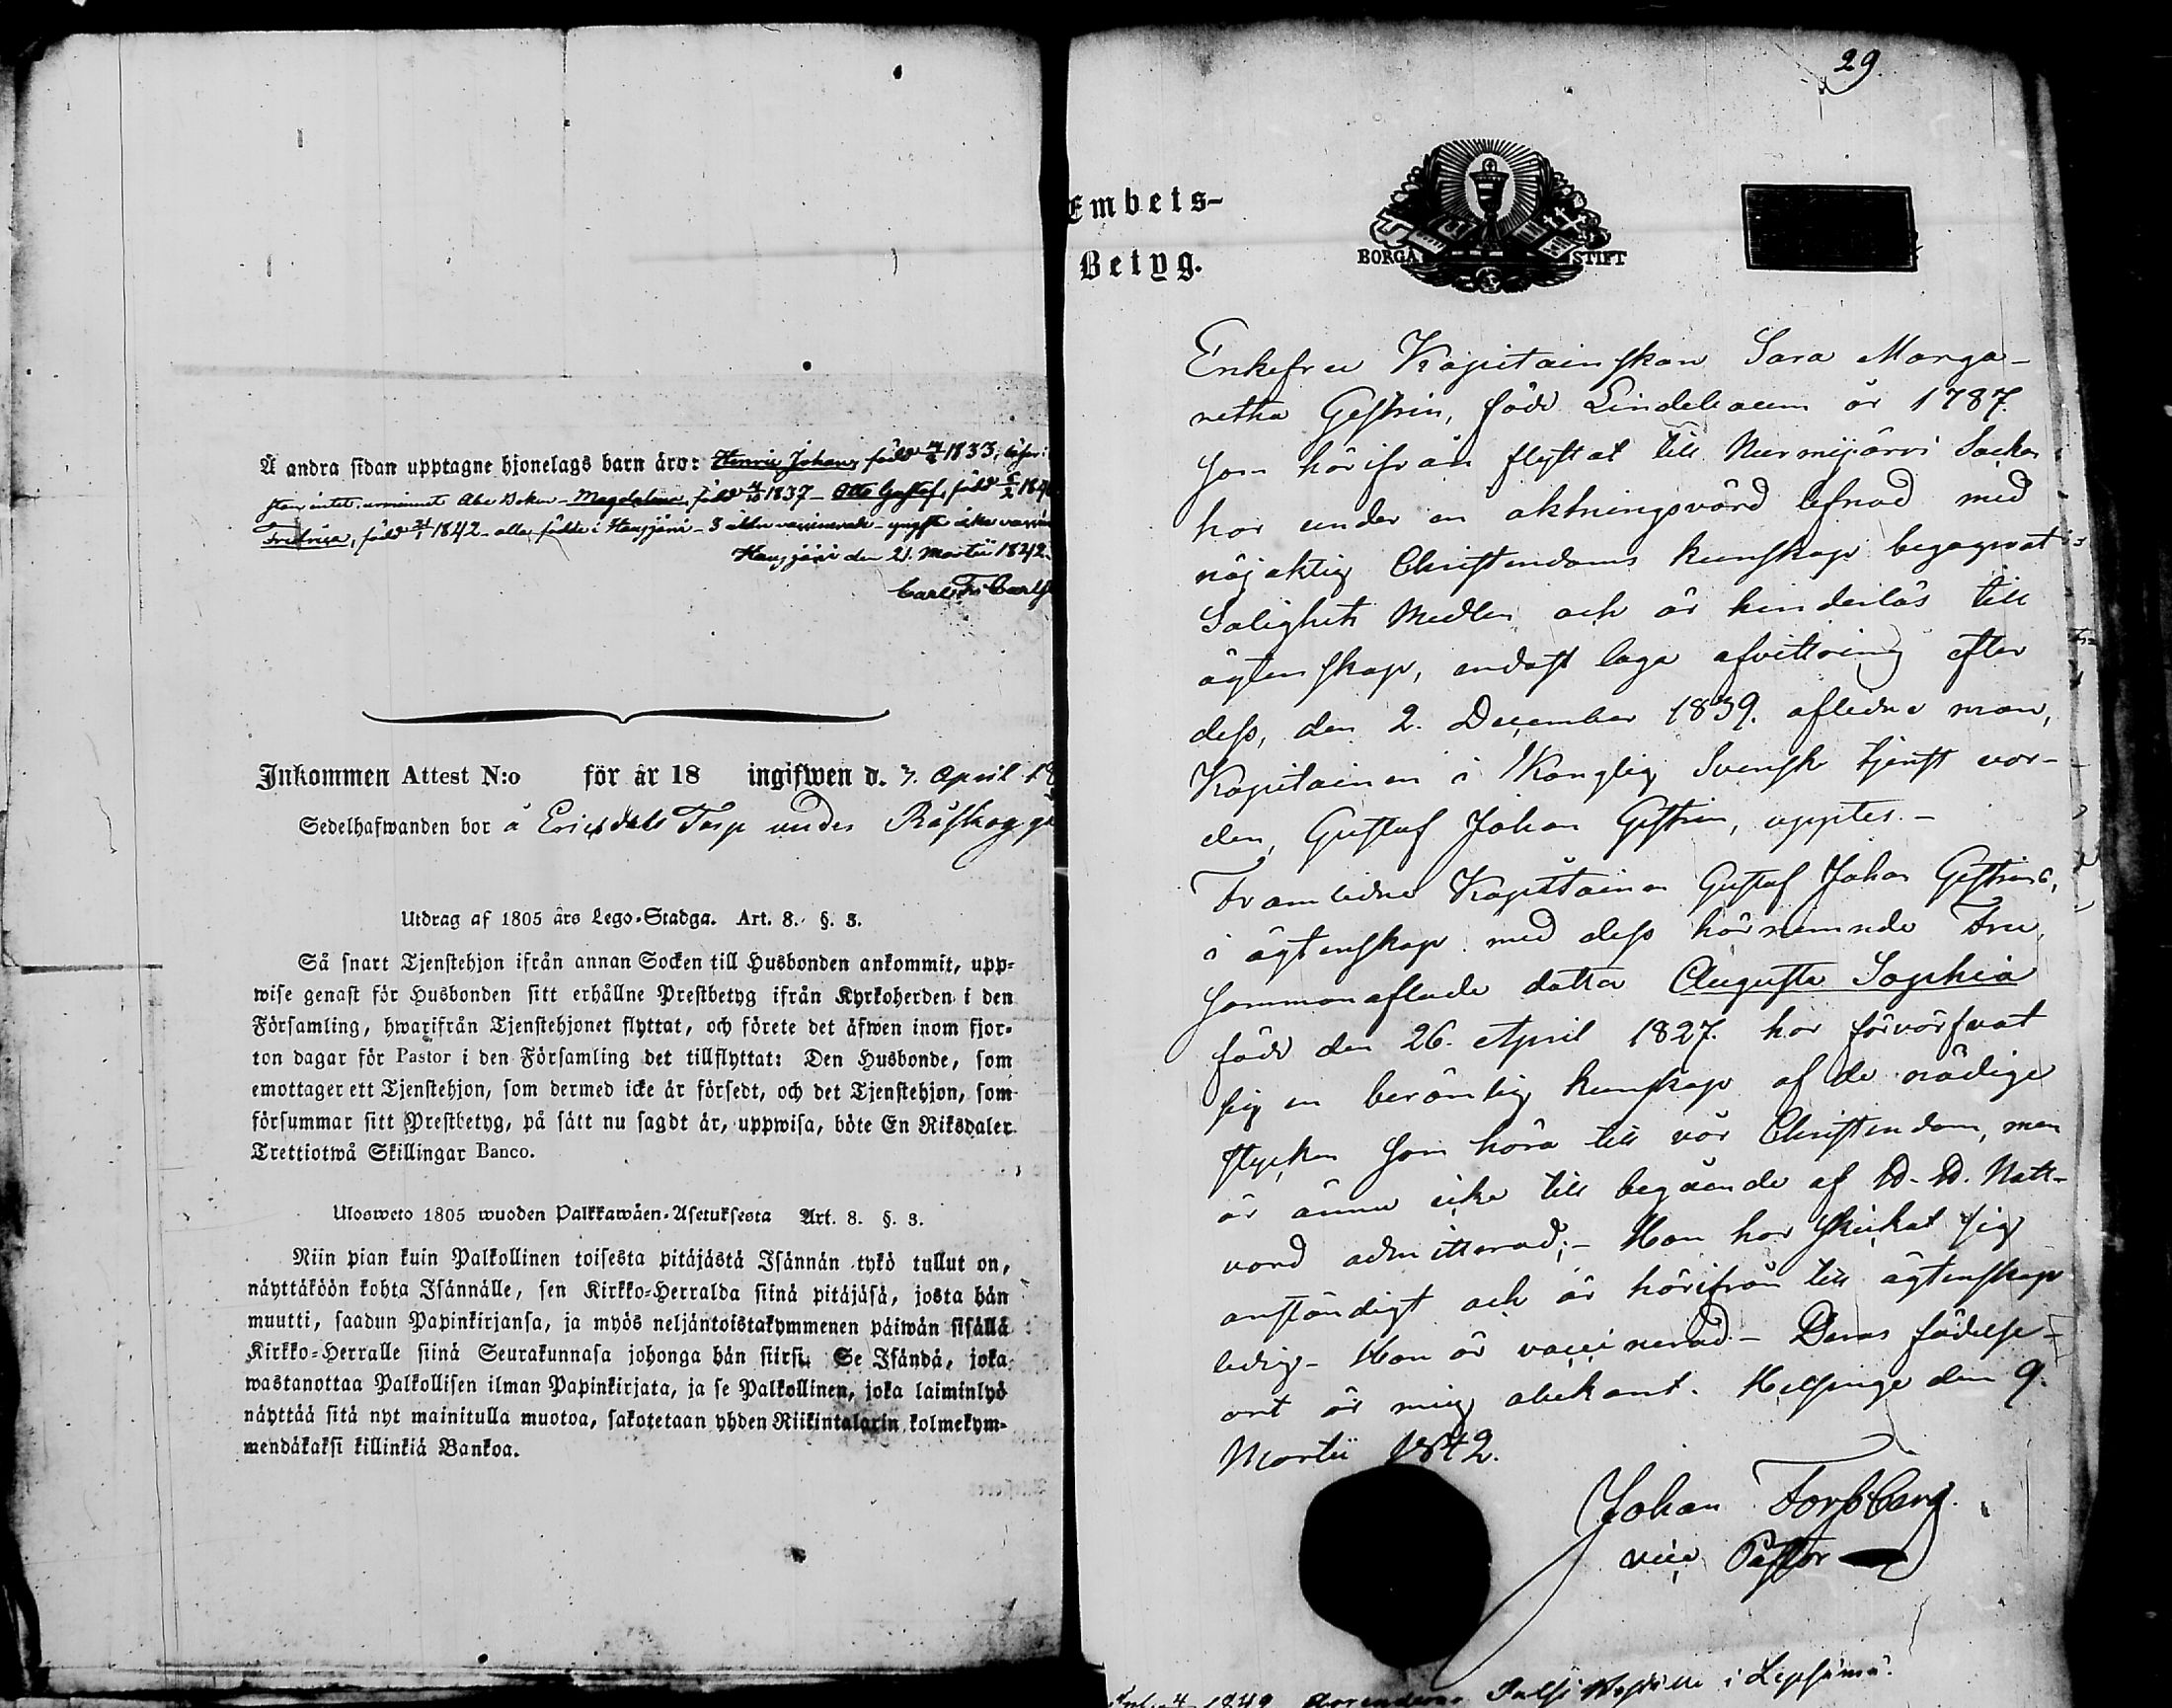 Å andra sidan upptagne hjonelags barn äro: Henric Johan, född 1833, läser:
intet, Abc Boken - Magdalena, född 1837 - Otto Gustaf, född
Fredrica, född 1842 - alla födde i Hausjärvi - 3 äldre vaccinerade - yngsta icke
Hausjärvi den 21. Martii 1842.
Carl Fr.
Inkommen Attest N:o för år 18 ingifwen d. 7. April 18
Sedelhafwanden bor å Ericsdals Torp under Råskog
Utdrag af 1805 års Lego-Stadga. Art. 8. §. 3.
Så snart Tjenstehjon ifrån annan Socken till Husbonden ankommit, upp-
wise genast för Husbonden sitt erhållne Prestbetyg ifrån Kyrkoherden i den
Församling, hwarifrån Tjenstehjonet flyttat, och förete det äfwen inom fjor-
ton dagar för Pastor i den Församling det tillflyttat: Den Husbonde, som
emottager ett Tjenstehjon, som dermed icke är försedt, och det Tjenstehjon, som
försummar sitt Prestbetyg, på sätt nu sagdt är, uppwisa, böte En Riksdaler
Trettiotwå Skillingar Banco.
Ulosweto 1805 wuoden Palkkawäen-Asetuksesta Art. 8. §. 3.
Niin pian kuin Palkollinen toisesta pitäjästä Isännän tykö tullut on,
näyttäköön kohta Isännälle, sen Kirkko-Herralda siinä pitäjäsä, josta hän
muutti, saadun Papinkirjansa, ja myös neljäntoistakymmenen päiwän sisällä
Kirkko-Herralle siinä Seurakunnasa johonga hän siirsi. Se Isändä, joka
wastanottaa Palkollisen ilman Papinkirjata, ja se Palkollinen, joka laiminlyö
näyttää sitä nyt mainitulla muotoa, sakotetaan yhden Riikintalarin kolmekym-
mendäkaksi killinkiä Bankoa.
29.
Embets-
Betyg.
BORGÅ STIFT
Enkefru Kapitainskan Sara Marga-
retha Gestrin, född Lindebaum år 1787.
som härifrån flyttat till Nurmijärvi Socken
har under en aktningsvärd lefnad med
nöjaktig Christendoms kunskap begagnat
Salighets Medlen och är hinderlös till
ägtenskap, endast laga afvittring efter
dess, den 2. December 1839. aflidne man,
Kapitainen i Kongliga Svensk tjenst var-
den, Gustaf Johan Gestrin, uppter. -
Framledne Kapitainen Gustaf Johan Gestrins,
i ägtenskap med dess härnämnde Fru,
sammanaflade dotter Augusta Sophia
född den 26. April 1827. har förvärfvat
sig en berömlig kunskap af de nödige
stycken som höra till vår Christendom, men
är ännu icke till begående af H. H. Natt-
vard admitterad; - Hon har skickat sig
anständigt och är härifrån till ägtenskap
ledig - Hon är vaccinerad - Deras födelse-
ort är mig obekant. Helsinge den 9.
Martii 1842.
Johan Forsberg.
vice Pastor
4 1842 i Lepsämä.